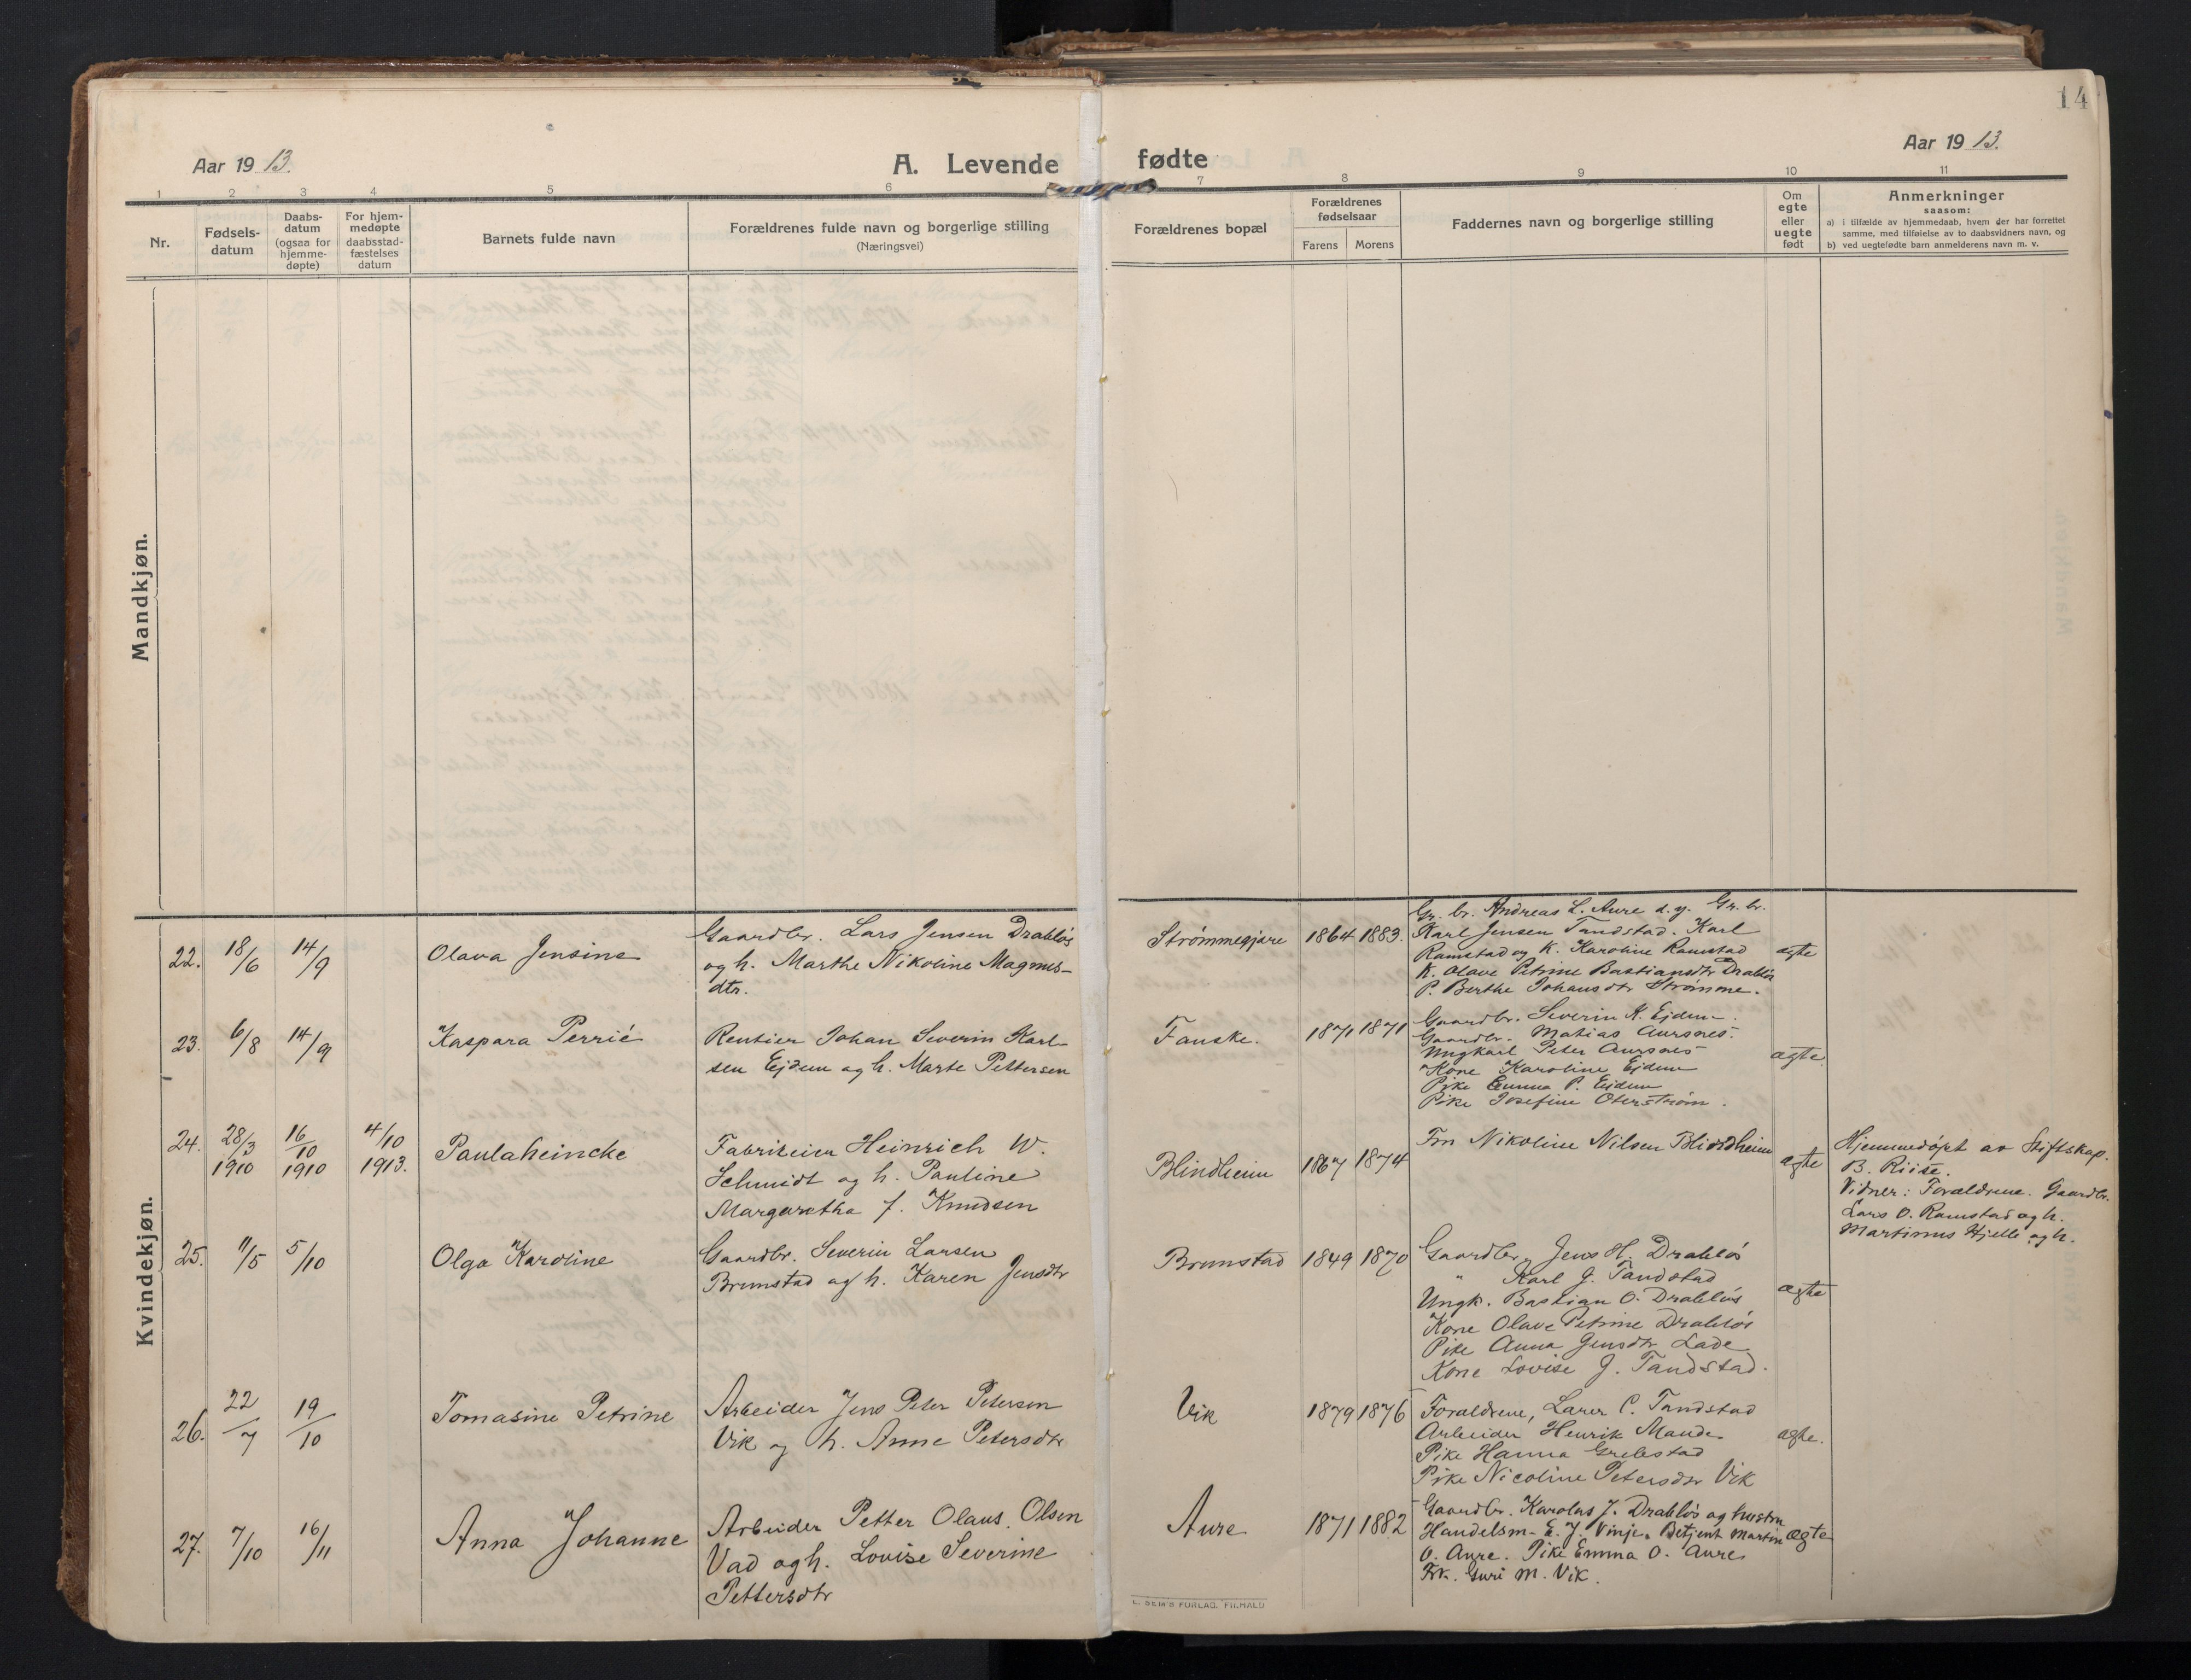 14
Aar 1913.
A. Levende fødte
Aar 1913.
1 2 3 4 5 6 7 8 9 10 11
Nr.
Fødsels-
datum
Daabs-
datum
(ogsaa for
hjemme-
døpte)
For hjem-
medøpte
daabsstad-
fæstelses
datum
Barnets fulde navn
Forældrenes fulde navn og borgerlige stilling
(Næringsvei)
Forældrenes bopæl
Forældrenes
fødselsaar
Farens Morens
Faddernes navn og borgerlige stilling
Om
egte
eller
uegte
født
Anmerkninger
saasom:
a) i tilfælde av hjemmedaab, hvem der har forrettet
samme, med tilføielse av to daabsvidners navn, og
b) ved uegtefødte barn anmelderens navn m. v.
Mandkjøn.
Kvindekjøn.
22. 18/6 14/9 Olava Jensine
Gaardbr. Lars Jensen Drabløs
og h. Marthe Nikoline Magnus-
dtr.
Strømmegjære 1864 1883.
Gr. br. Andreas L. Aure d.y. Gr. br.
Karl Jensen Tandstad. Karl
Ramstad og K. Karoline Ramstad
K. Olave Petrine Bastiansdtr Drabløs
P. Berthe Johansdtr Strømme.
ægte
23. 6/8 14/9 Kaspara Perrié
Rentier Johan Severin Karl-
sen Ejdem og h. Marte Pettersen
Fauske. 1871 1871
Gaardbr. Severin K. Ejdem.
Gaardbr. Matias Aursnes.
Ungkarl Peter Aursnes
Kone Karoline Ejdem
Pike Emma P. Ejdem
Pike Josefine Oterstrøm.
ægte
24. 28/3 1910 16/10 1910 4/10 1913. Paulaheincke
Fabrikeier Heinrich W.
Schmidt og h. Pauline
Margaretha f. Knudsen
Blindheim 1867 1874
Fru Nikoline Nilsen Blindheim
ægte
Hjemmedøpt av Stiftskap.
B. Riise.
Vidner: Forældrene. Gaardbr.
Lars O. Ramstad og h.
Martinus Hjelle og h.
25. 11/5 5/10 Olga Karoline
Gaardbr. Severin Larsen
Brunstad og h. Karen Jensdtr
Brunstad 1849 1870
Gaardbr. Jens H. Drabløs
" Karl J. Tandstad
Ungk. Bastian O. Drabløs
Kone Olave Petrine Drabløs
Pike Anna Jensdtr Lade
Kone Lovise J. Tandstad.
ægte
26. 22/7 19/10 Tomasine Petrine
Arbeider Jens Peter Petersen
Vik og h. Anne Petersdtr
Vik 1879 1876
Forældrene, Lærer C. Tandstad
Arbeider Henrik Mande
Pike Hanna Grebstad
Pike Nicoline Petersdtr Vik
ægte.
27. 7/10 16/11 Anna Johanne
Arbeider Petter Olaus Olsen
Vad og h. Lovise Severine
Pettersdtr
Aure 1871 1882
Gaardbr. Karolus J. Drabløs og hustru
Handelsm. E. J. Vinje. Betjent Martin
O. Aure. Pike Emma O. Aure
Frk. Guri M. Vik.
ægte